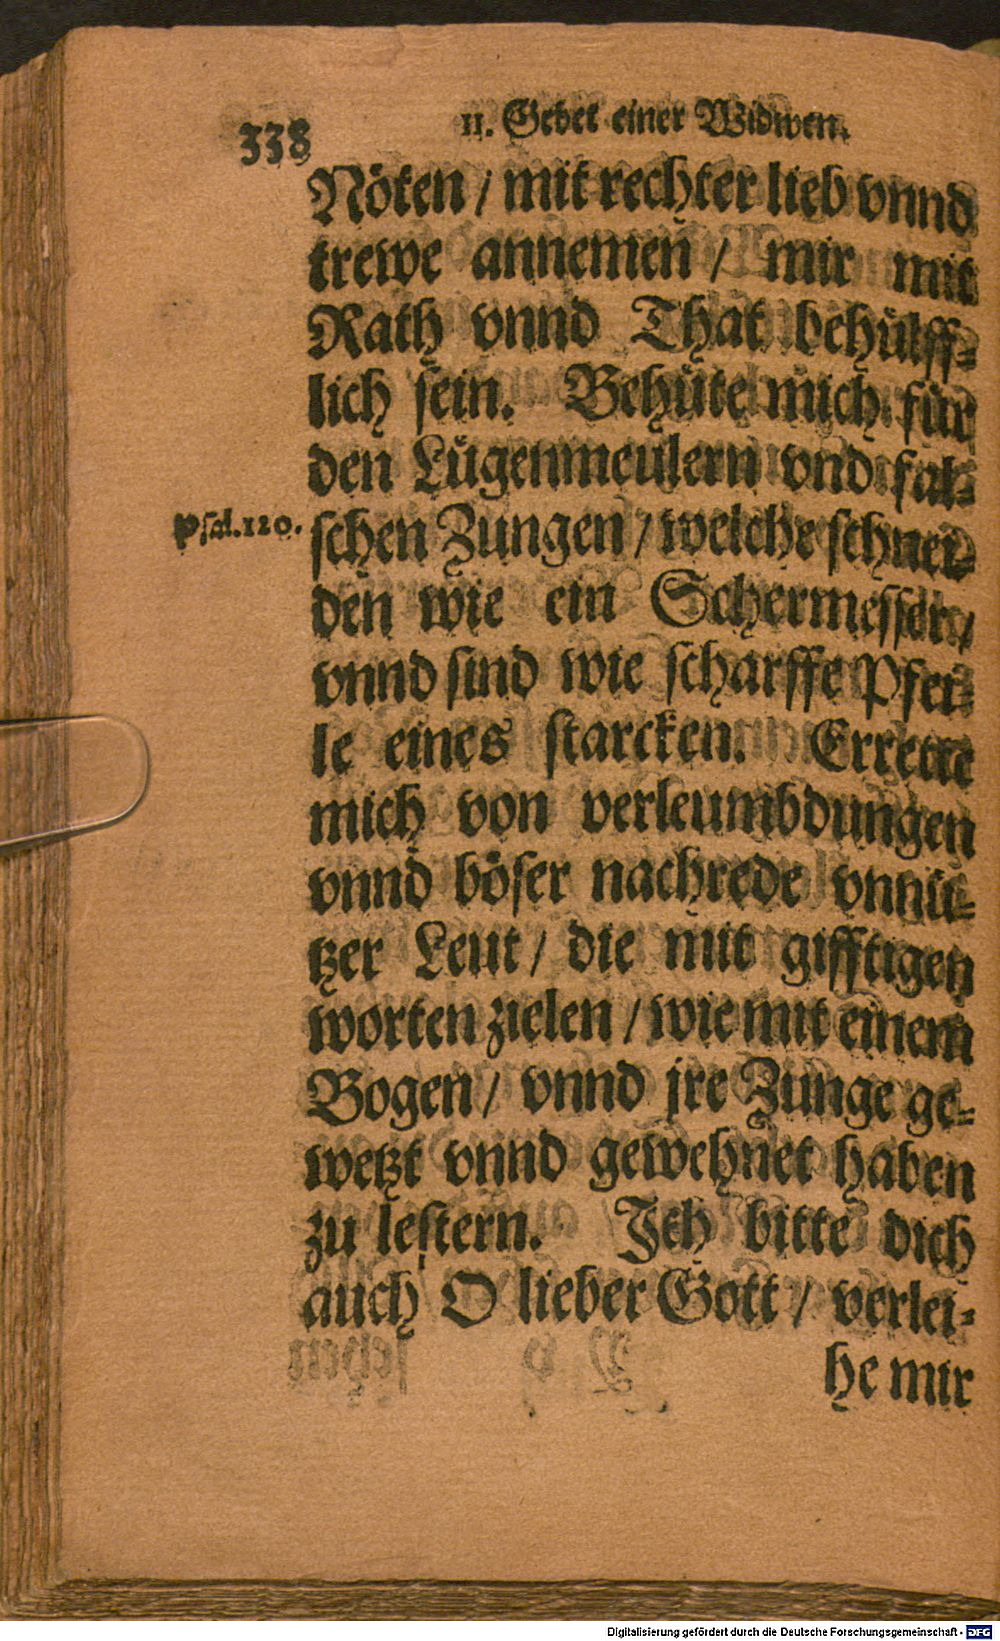 338
11. Gebet einer Widwen.
Nöten / mit rechter lieb vnnd
trewe annemen / mir mit
Rath vnnd That behülff-
lich sein. Behüte mich für
den Lügenmeulern vnd fal-
Psal. 120.
schen Zungen / welche schnei-
den wie ein Schermesser /
vnnd sind wie scharffe Pfei-
le eines starcken. Errette
mich von verleumbdungen
vnnd böser nachrede vnnü-
tzer Leut / die mit gifftigen
worten zielen / wie mit einem
Bogen / vnnd jre Zunge ge-
wetzt vnnd gewehnet haben
zu lestern. Ich bitte dich
auch O lieber Gott / verlei-
he mir
Digitalisierung gefördert durch die Deutsche Forschungsgemeinschaft - DFG